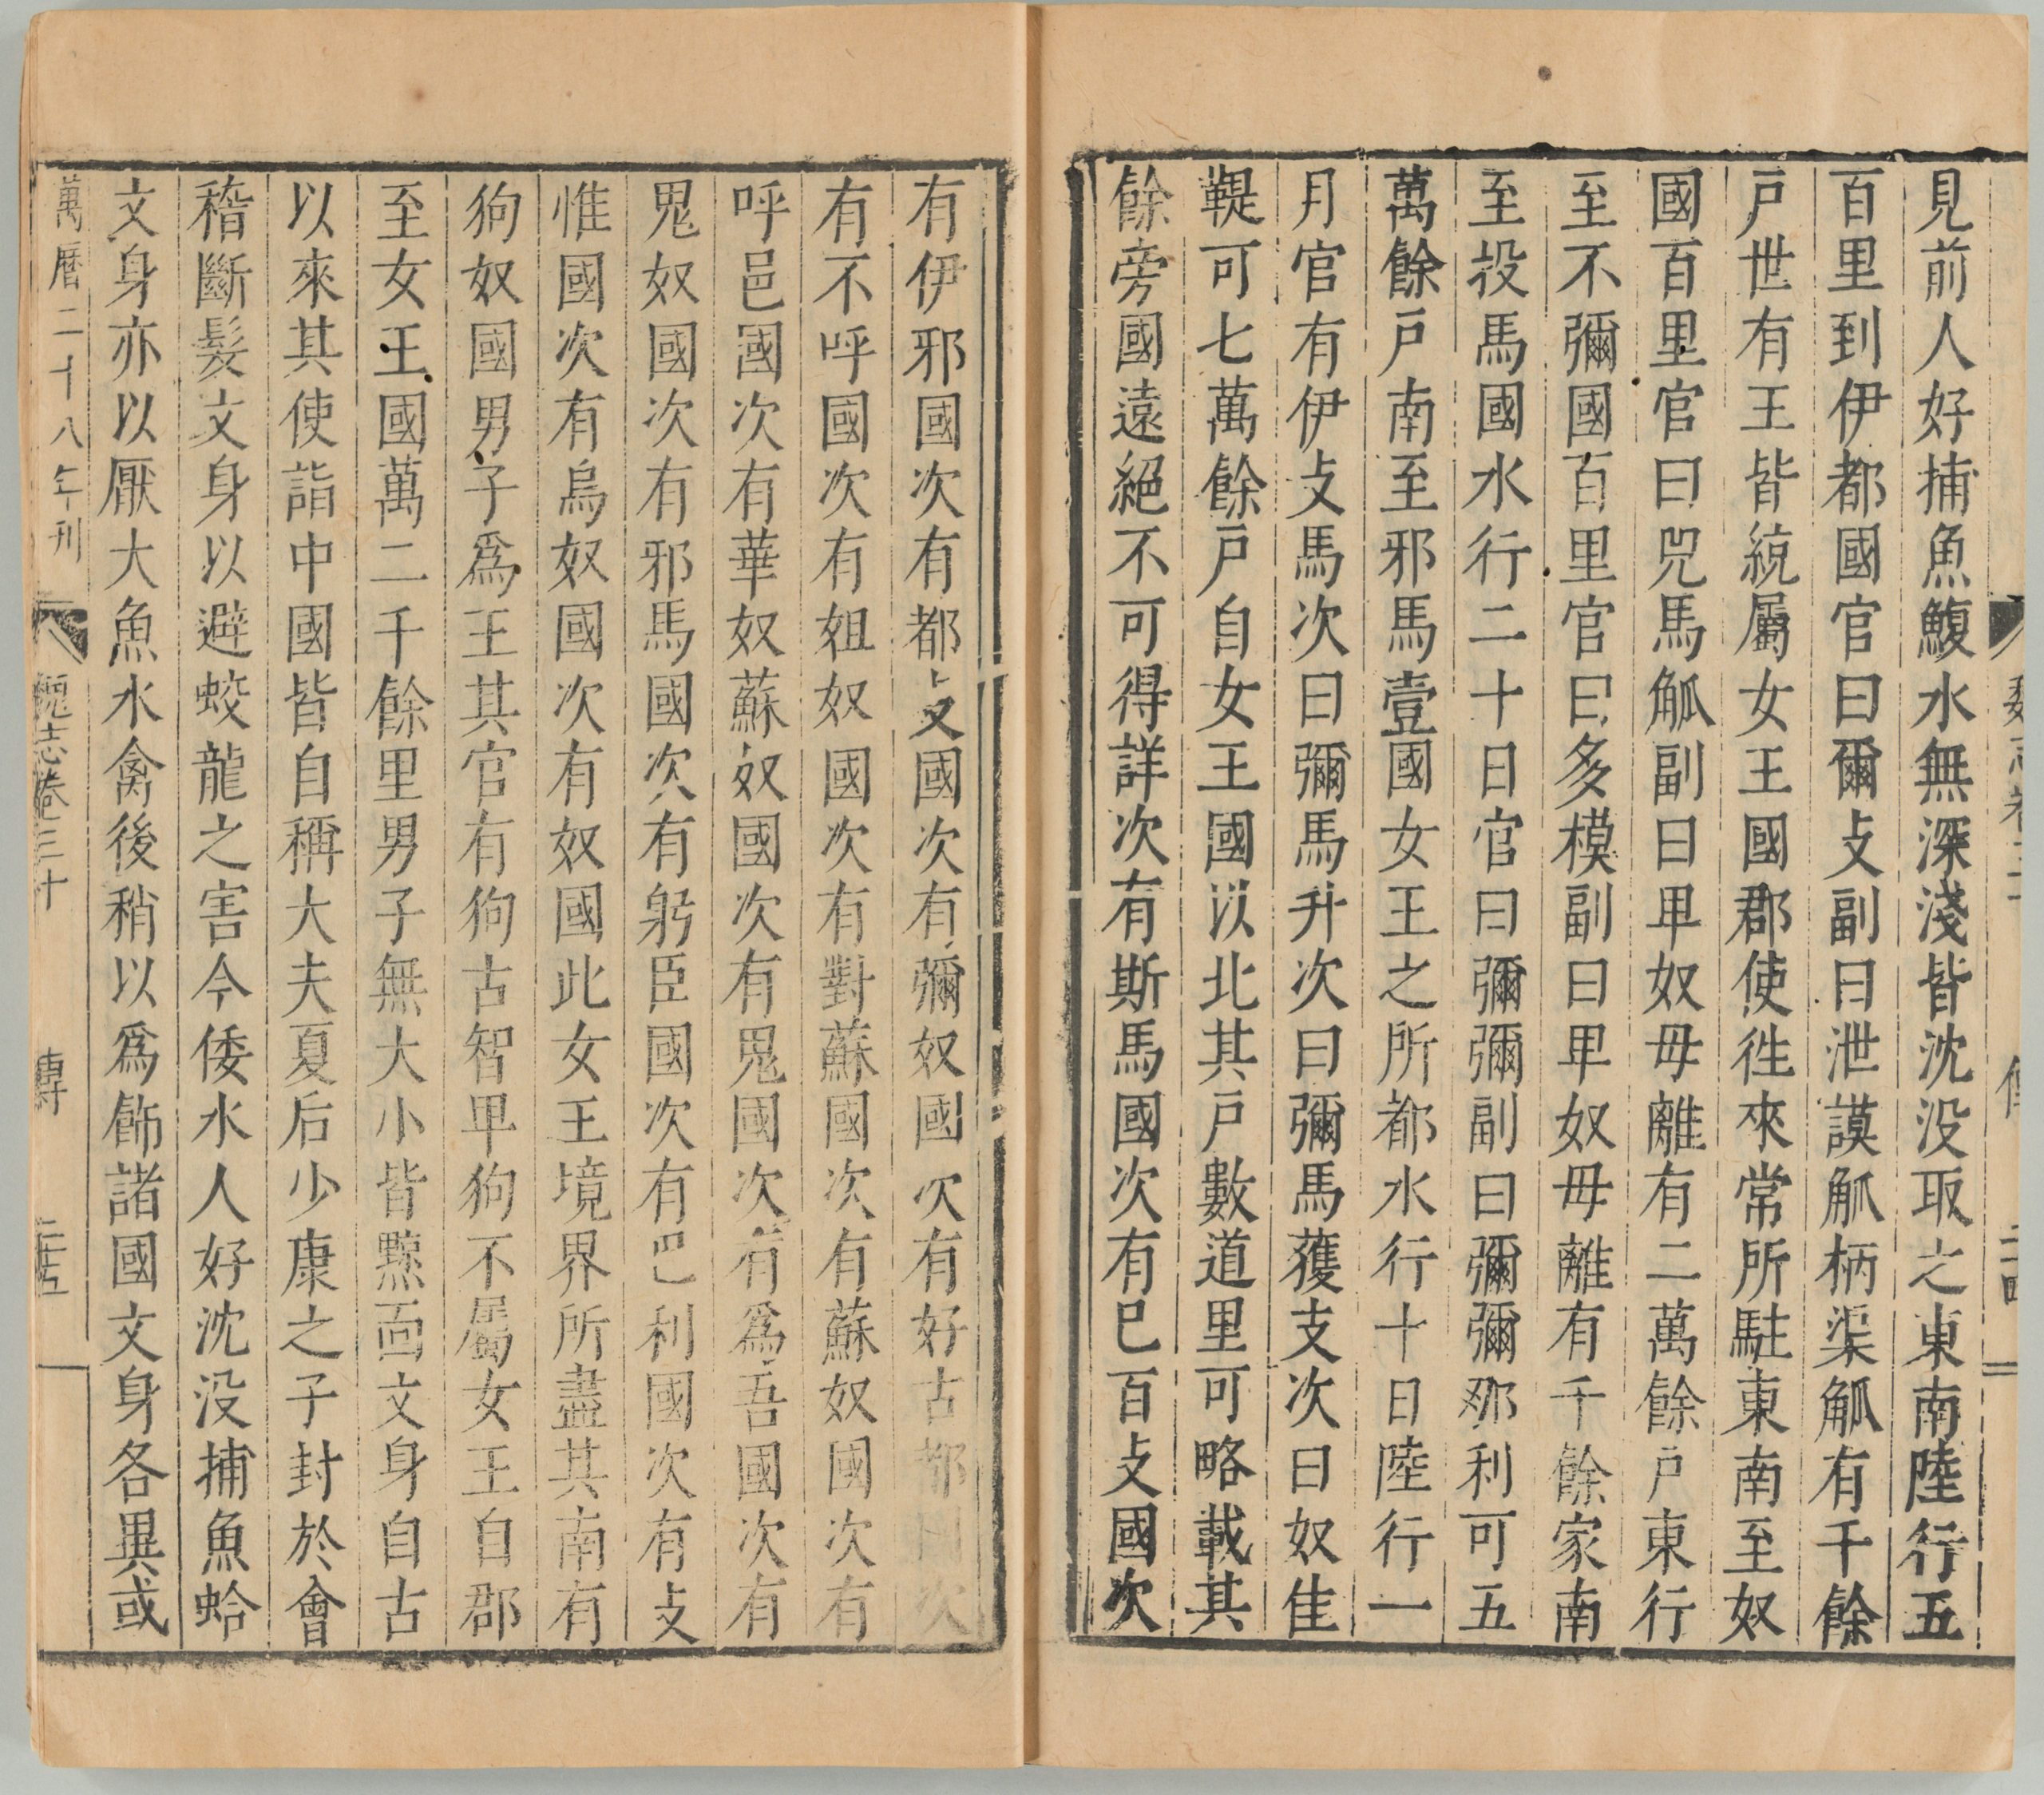 見前人好捕魚鰒水無深淺皆沈没取之東南陸行五
百里到伊都國官曰爾支副曰泄謨觚柄渠觚有千餘
戸世有王皆統屬女王國郡使徃來常所駐東南至奴
國百里官曰兕馬觚副曰卑奴毋離有二萬餘戸東行
至不彌國百里官曰多模副曰卑奴毋離有千餘家南
至投馬國水行二十日官曰彌彌副曰彌彌那利可五
萬餘戸南至邪馬壹國女王之所都水行十日陸行一
月官有伊支馬次曰彌馬升次曰彌馬獲支次曰奴佳
鞮可七萬餘戸自女王國以北其戸數道里可略載其
餘旁國遠絕不可得詳次有斯馬國次有巳百支國次
有伊邪國次有都支國次有彌奴國次有好古都國次
有不呼國次有姐奴國次有對蘇國次有蘇奴國次有
呼邑國次有華奴蘇奴國次有鬼國次有爲吾國次有
鬼奴國次有邪馬國次有躬臣國次有巴利國次有支
惟國次有烏奴國次有奴國此女王境界所盡其南有
狗奴國男子爲王其官有狗古智卑狗不屬女王自郡
至女王國萬二千餘里男子無大小皆黥面文身自古
以來其使詣中國皆自稱大夫夏后少康之子封於會
稽斷髮文身以避蛟龍之害今倭水人好沈没捕魚蛤
文身亦以厭大魚水禽後稍以爲飾諸國文身各異或
萬曆二十八年刊
魏志卷三十
傳
二十五